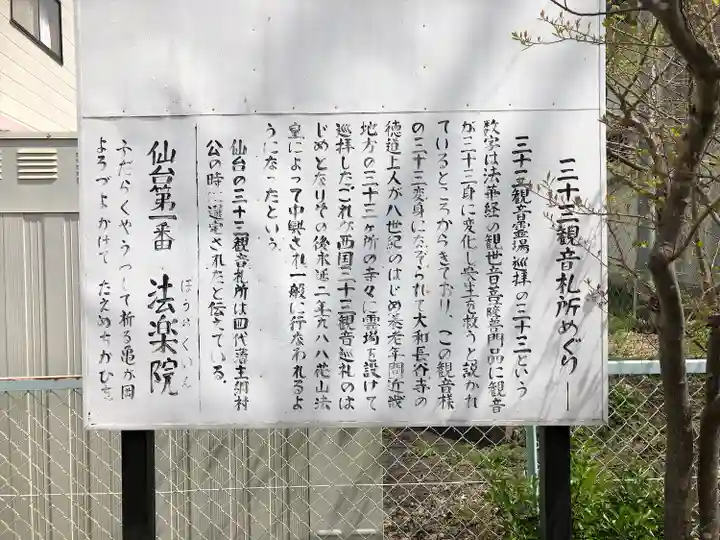 三十三観音札所めぐり
三十三観音霊場巡拝の三十三という
数字は法華経の観世音菩薩普門品に観音
が三十三身に変化し衆生を救うと説かれ
ているところからきており、この観音様
の三十三変身になぞらえて大和長谷寺の
徳道上人が八世紀のはじめ養老年間近畿
地方の三十三ヶ所の寺々に霊場を設けて
巡拝したごれが西国三十三観音巡礼のは
じめとなりその後永延二年九八八花山法
皇によって中興され一般に行なわれるよ
うになったという。
仙台の三十三観音札所は四代藩主綱村
公の時に選定されたと伝えている。
仙台第一番 法楽院
ほうらくいん
ふだらくやうつして祈る亀が岡
よろづよかけて たえぬちかひを